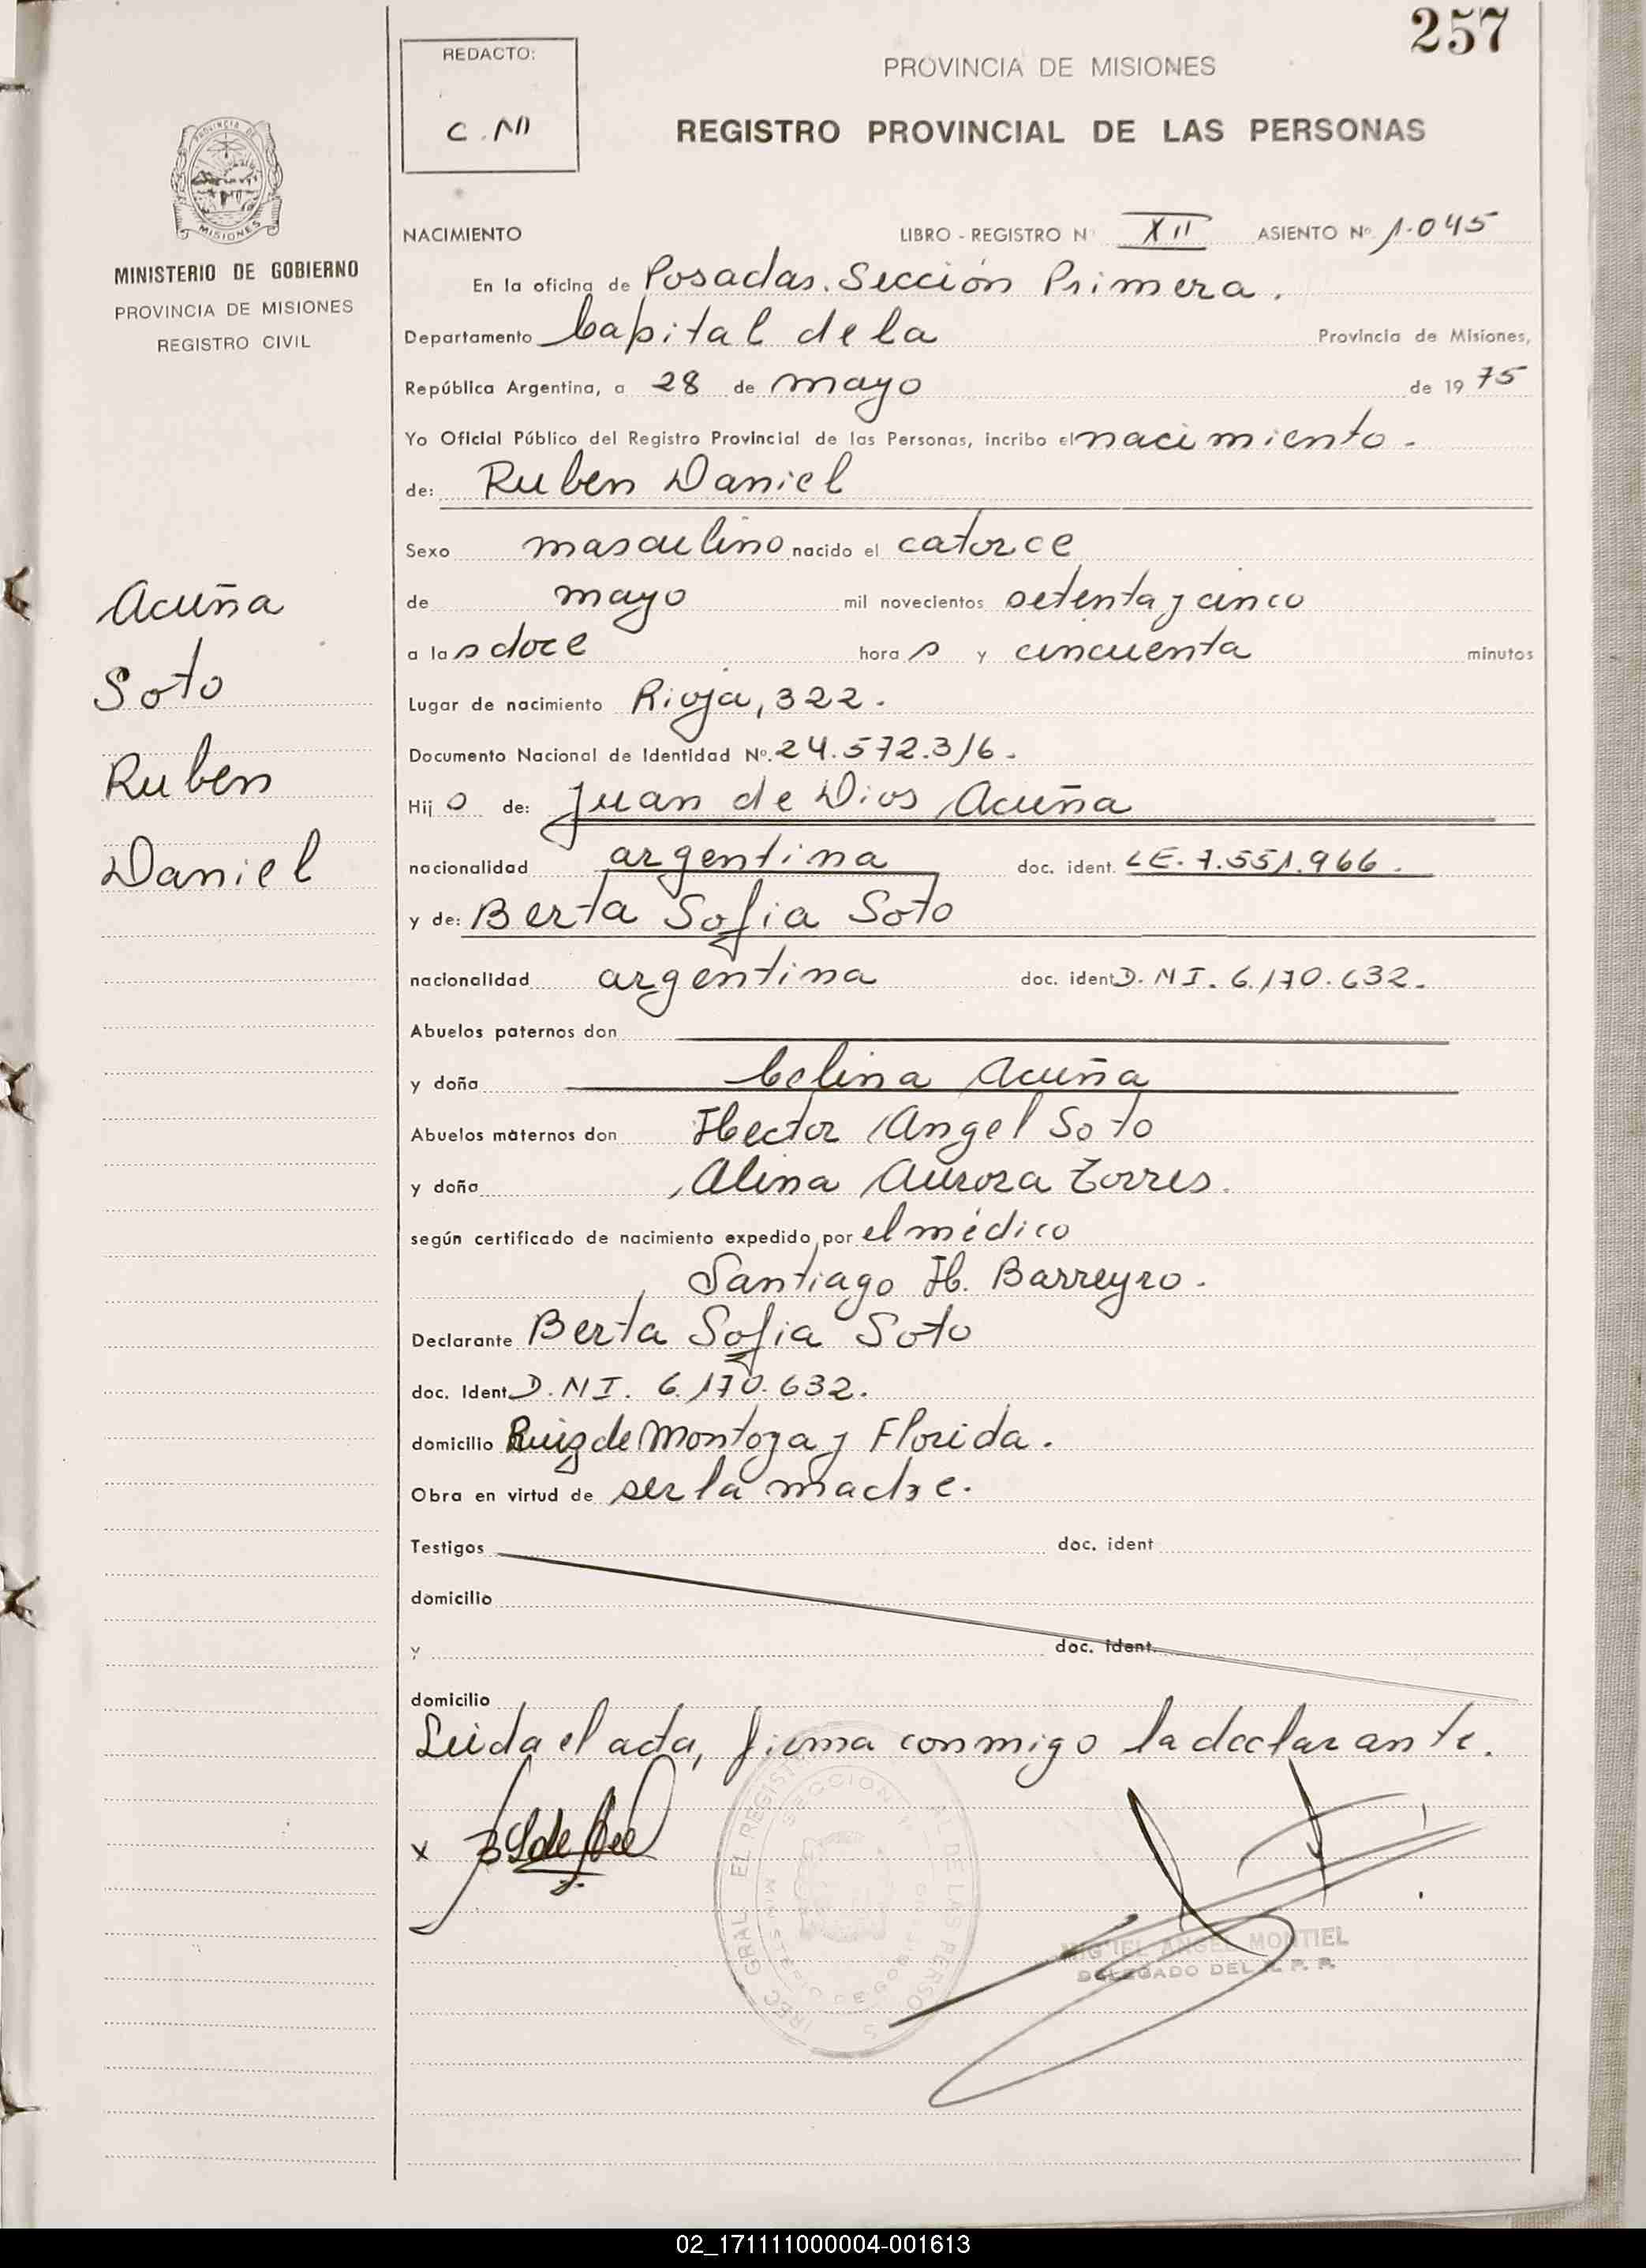 257
REDACTO:
C.M
PROVINCIA DE MISIONES
REGISTRO PROVINCIAL DE LAS PERSONAS
MISIONES
MINISTERIO DE GOBIERNO
PROVINCIA DE MISIONES
REGISTRO CIVIL
NACIMIENTO LIBRO - REGISTRO N° XII ASIENTO Nº 1.045
En la oficina de Posadas. Sección Primera.
Departamento Capital de la Provincia de Misiones,
República Argentina, a 28 de mayo de 1975
Yo Oficial Público del Registro Provincial de las Personas, incribo el nacimiento.
de: Ruben Daniel
Sexo masculino nacido el catorce
de mayo mil novecientos setenta y cinco
a las doce horas y cincuenta minutos
Lugar de nacimiento Rioja, 322.
Documento Nacional de Identidad Nº. 24.572.316.
Hijo de: Juan de Dios Acuña
nacionalidad argentina doc. ident. LE. 7.551.966.
y de: Berta Sofia Soto
nacionalidad argentina doc. ident D.NI. 6.170.632.
Abuelos paternos don
y doña Celina Acuña
Abuelos maternos don Hector Angel Soto
y doña Alina Aurora Torres.
según certificado de nacimiento expedido por el médico
Santiago H. Barreyro.
Declarante Berta Sofia Soto
doc. Ident D.NI. 6.170.632.
domicilio Ruiz de Montoya y Florida.
Obra en virtud de ser la madre.
Testigos doc. ident
domicilio
y doc. ident.
domicilio
Leida el acta, firma conmigo la declarante.
x
MIGUEL ANGEL MONTIEL
DELEGADO DEL R. P. P.
Acuña
Soto
Ruben
Daniel
02_171111000004-001613